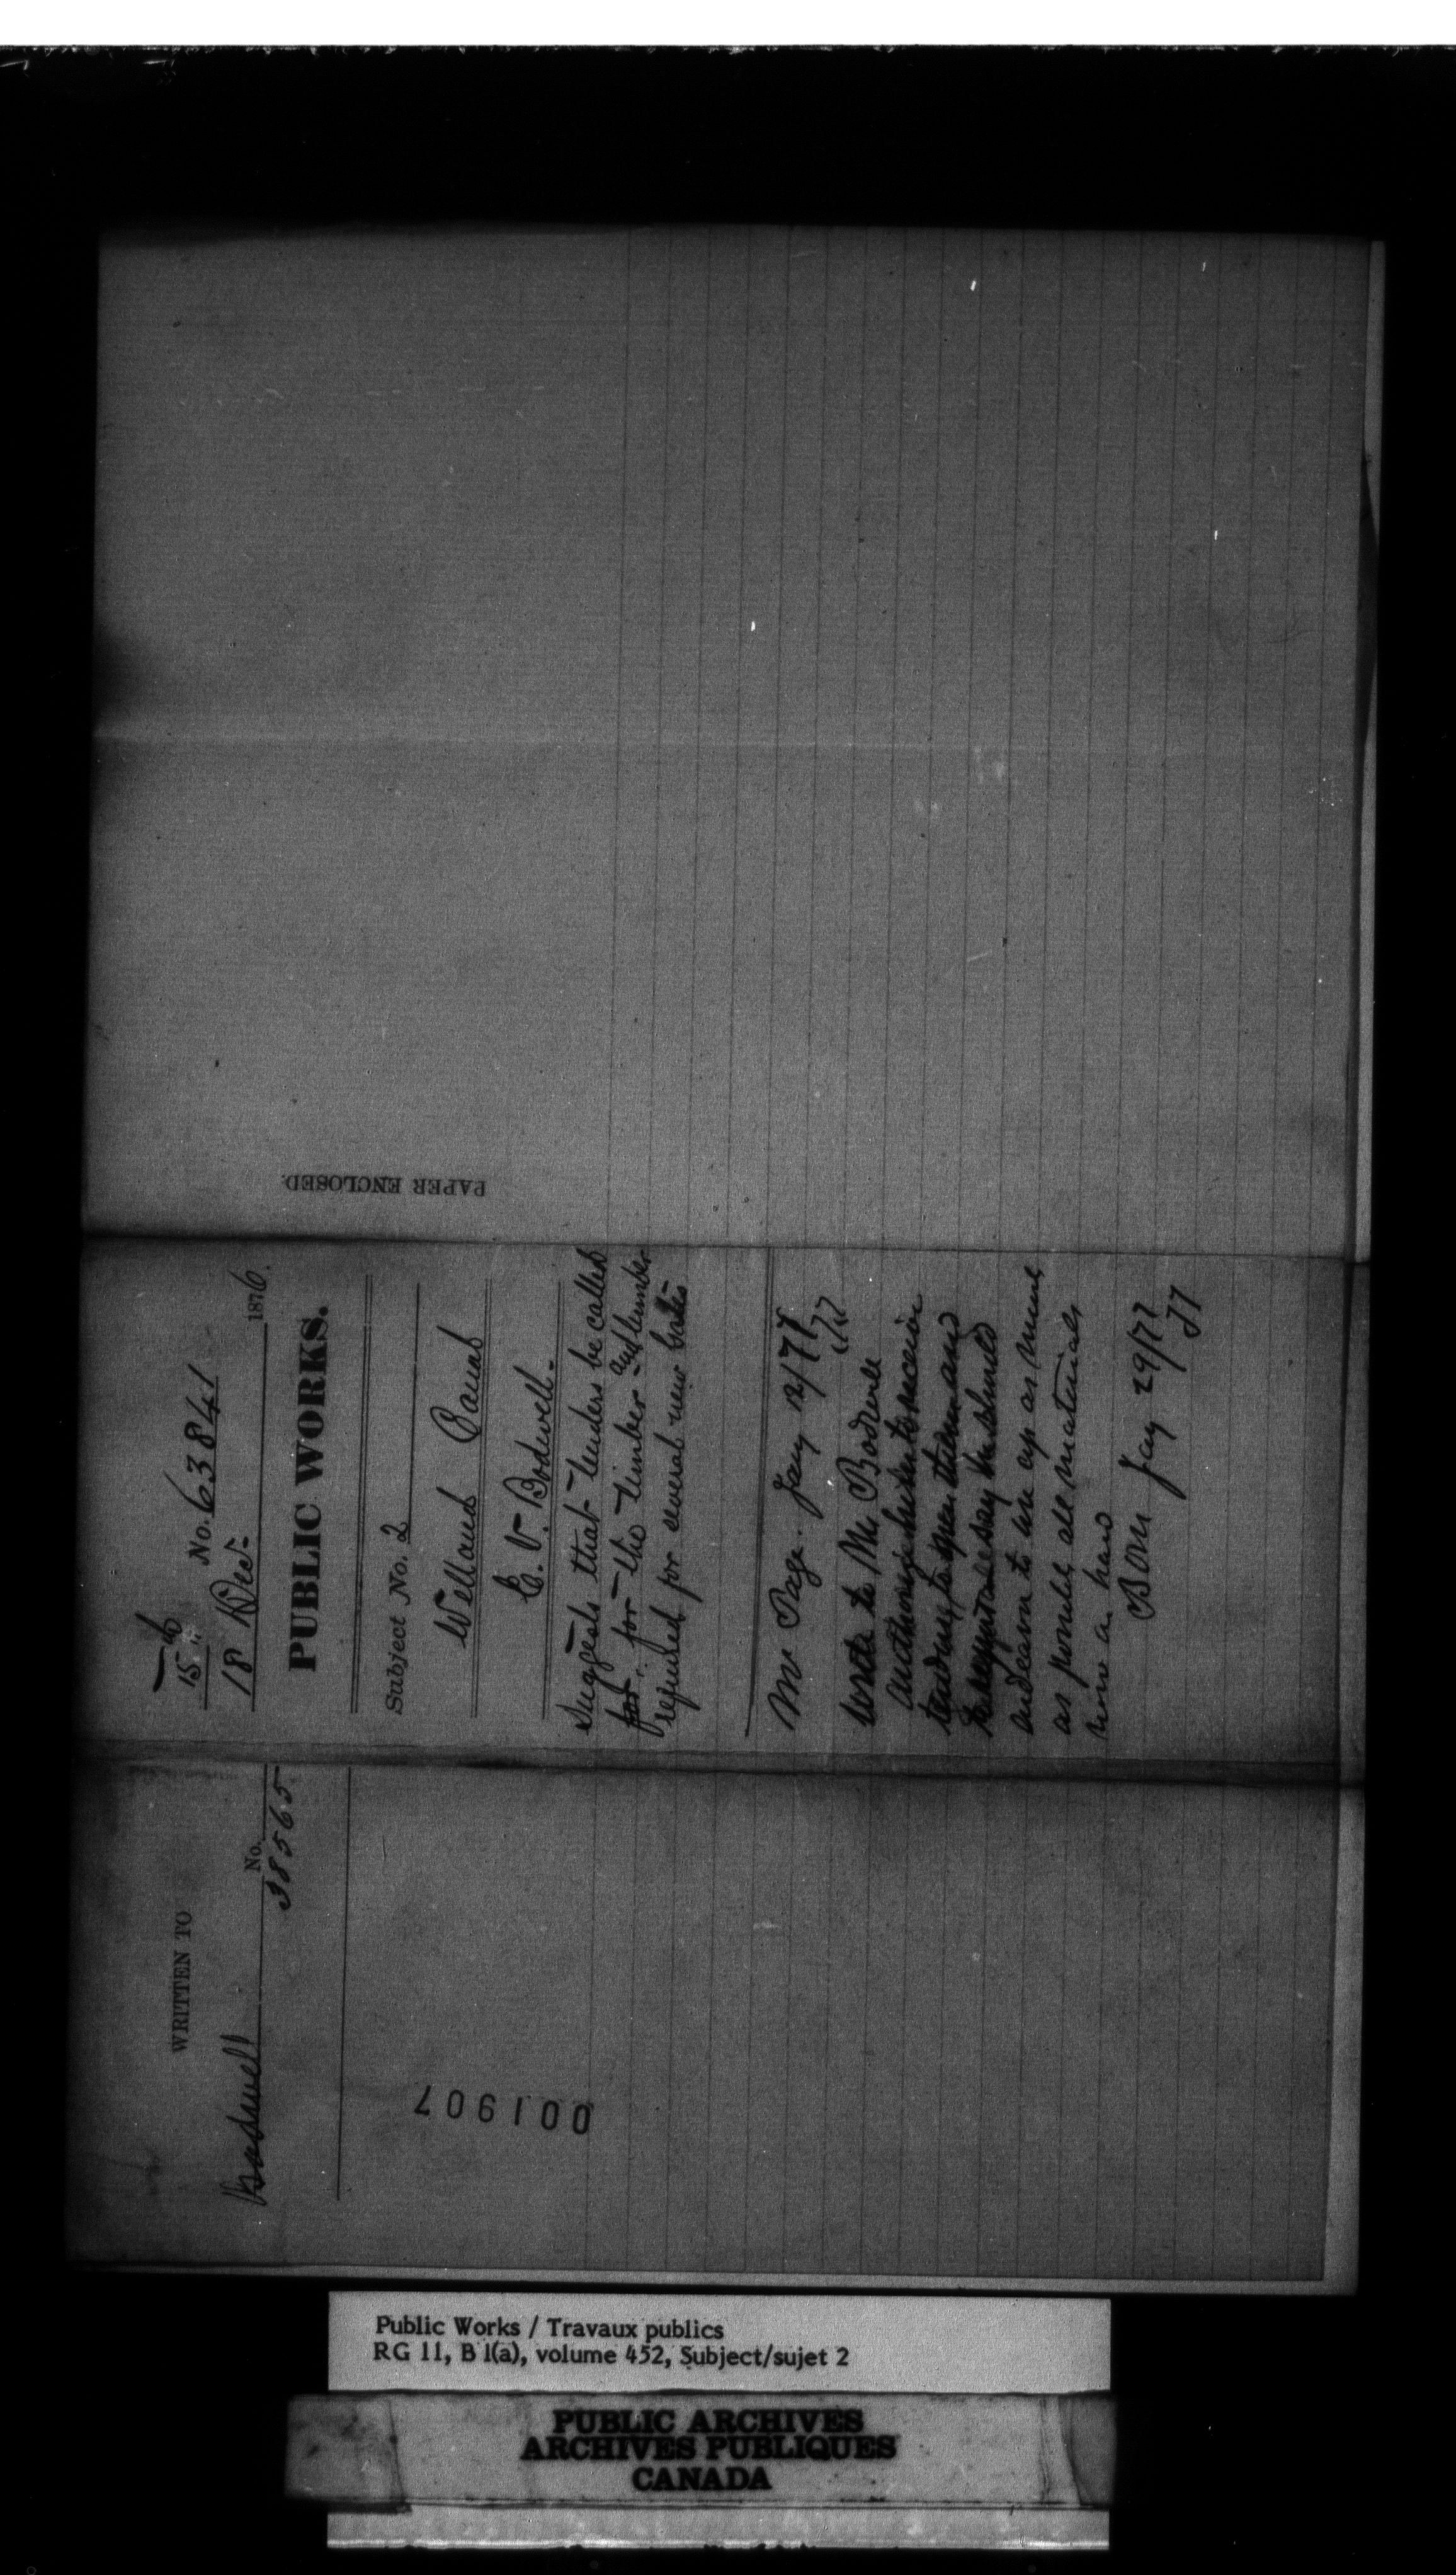 PAPER ENCLOSED.
15
No. 63841
18 Dec: 1876.
PUBLIC WORKS.
Subject No. 2
Welland Canal
E. V. Bodwell.
Suggests that Tenders be called
for for the Timber and lumber
required for several new Gates
Mr Page. Jany 12/77
wrote to Mr Bodwell
authorizing him to receive
tenders, to open them and
to say he should
endeavor to use up as much
as possible all materials
now on hand
Jany 29/77
WRITTEN TO
Bodwell No.
38565
001907
Public Works / Travaux publics
RG 11, B 1(a), volume 452, Subject/sujet 2
PUBLIC ARCHIVES
ARCHIVES PUBLIQUES
CANADA